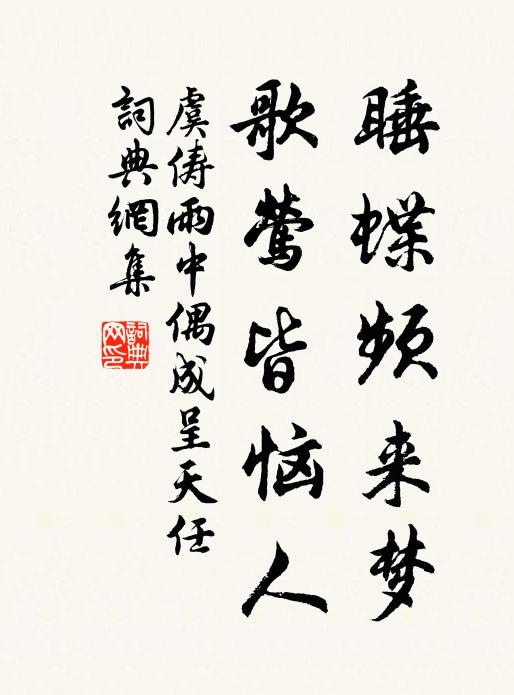 睡蝶频来梦
歌莺皆恼人
虞俦雨中偶成呈天任
詞典網集
詞典网印